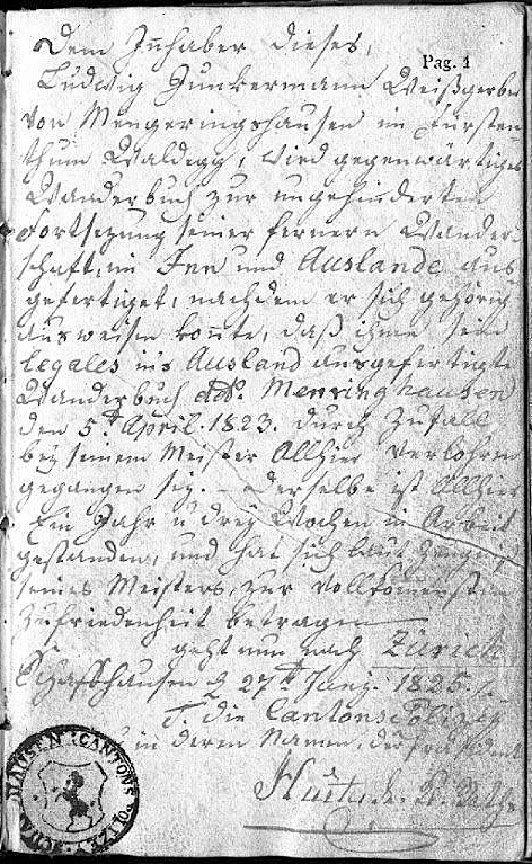 Pag. 1
Dem Inhaber dieses,
Ludwig Junkermann Weißgerber
von Mengeringshausen im Fürsten-
thum Waldegg, wird gegenwärtiges
Wanderbuch zur ungehinderten
Fortsezung seiner fernern Wander-
schaft, im Inn und Auslande aus
gefertiget, nachdem er sich gehörig
ausweisen konnte, daß ihme sein
legales ins Ausland ausgefertigte
Wanderbuch dd. Menringhausen
den 5.t April. 1823. durch Zufall
bey seinem Meister Allhier verlohren
gegangen sey. – Derselbe ist Allhier
Ein Jahr u drey Wochen in Arbeit
gestanden, und hat sich laut Zeugniß
seines Meisters, zur vollkommensten
Zufriedenheit betragen
geht nun nach Zürich
Schaffhausen d 27t Juny. 1825.
F. die Cantons Polizey
in deren Namen, der
CANTONS POLIZEY SCHAFHAUSEN